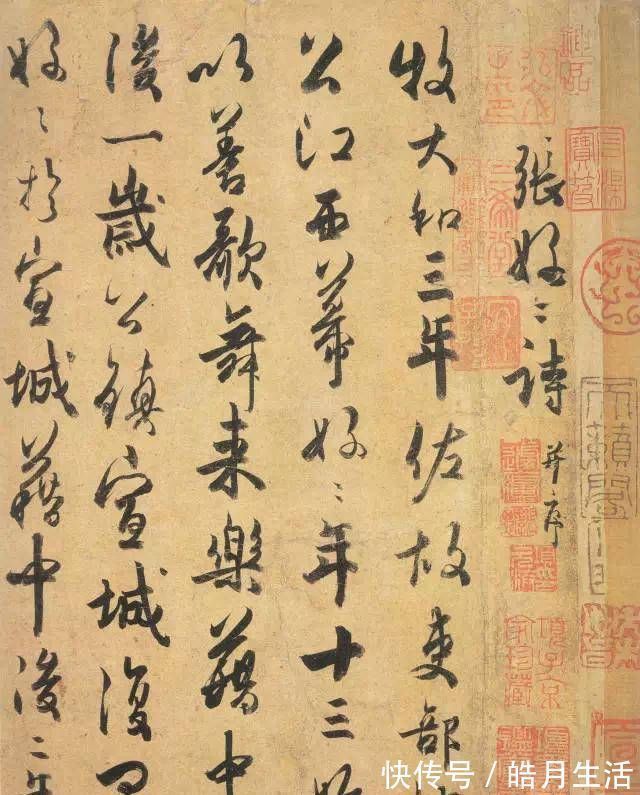 張好〻詩 并序
牧大和三年佐故吏部
公江西幕好〻年十三
以善歌舞来樂籍中
後一歲公鎮宣城復
好〻於宣城籍中後二年
天籟閣
項子京家珍藏
快传号 / 皓月生活